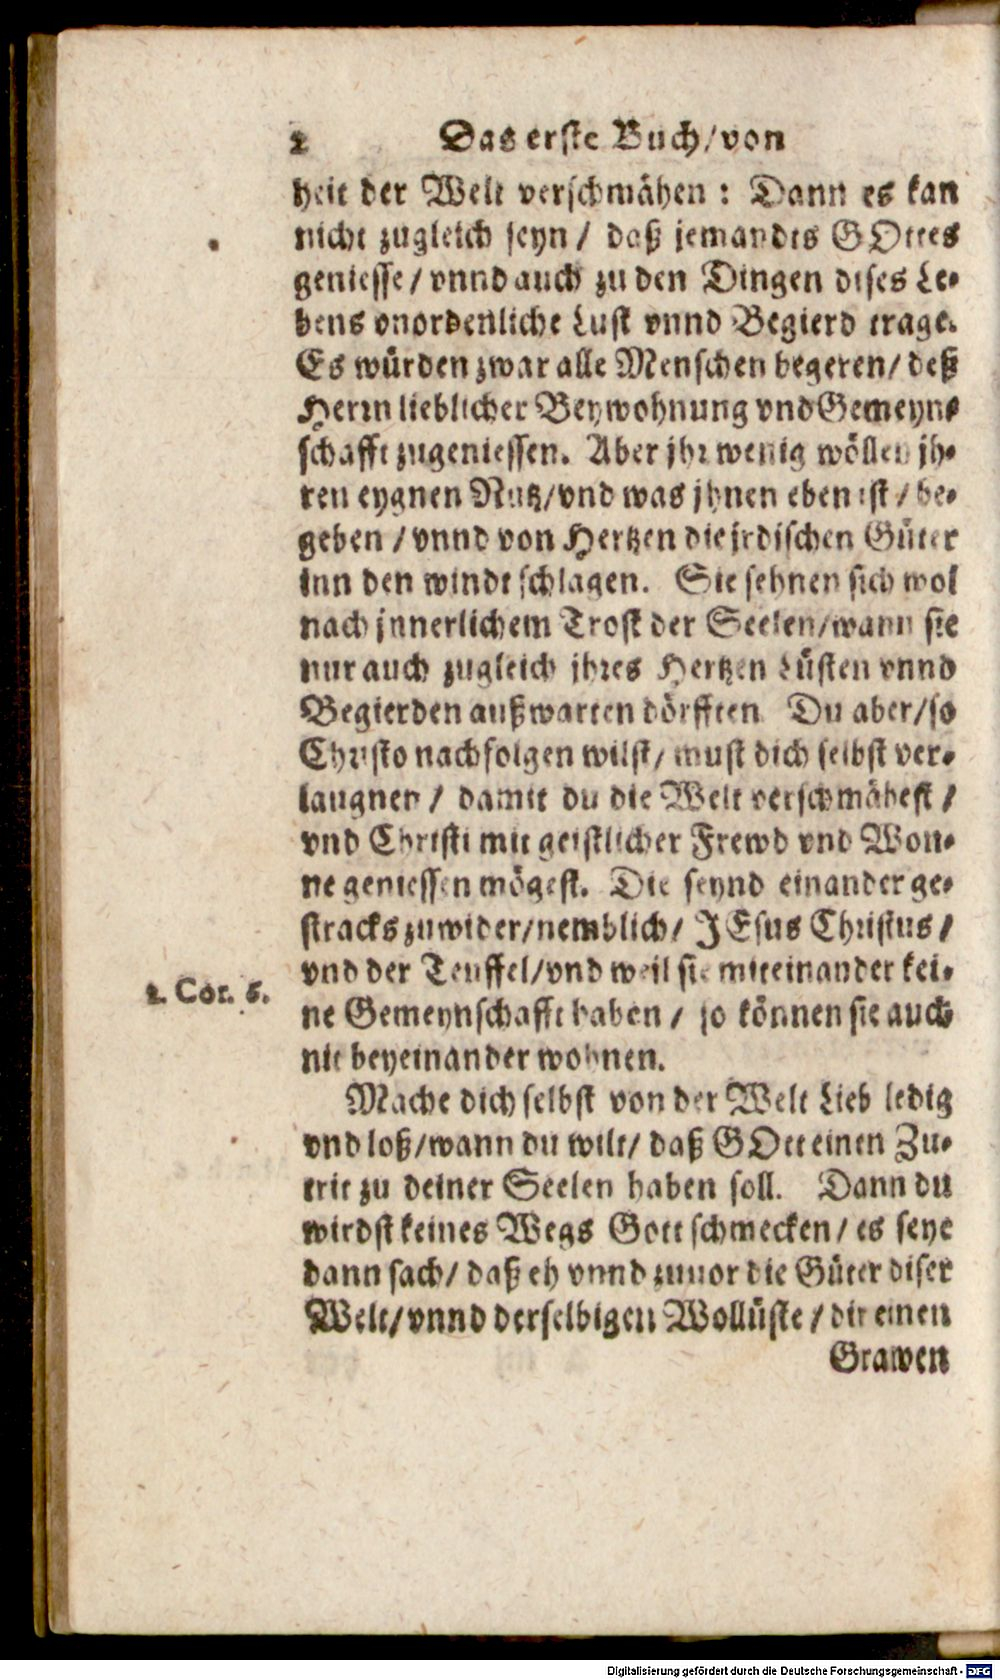 2 Das erste Buch/von
heit der Welt verschmähen: Dann es kan
nicht zugleich seyn/ daß jemandts GOttes
geniesse/vnnd auch zu den Dingen dises Le-
bens vnordenliche Lust vnnd Begierd trage.
Es würden zwar alle Menschen begeren/deß
Herrn lieblicher Beywohnung vnd Gemeyn-
schafft zugeniessen. Aber jhr wenig wöllen jh-
ren eygnen Nutz/vnd was jhnen eben ist/be-
geben/vnnd von Hertzen die jrdischen Güter
inn den windt schlagen. Sie sehnen sich wol
nach jnnerlichem Trost der Seelen/wann sie
nur auch zugleich jhres Hertzen Lüsten vnnd
Begierden außwarten dörfften Du aber/so
Christo nachfolgen wilst/must dich selbst ver-
laugnen/ damit du die Welt verschmähest/
vnd Christi mit geistlicher Frewd vnd Won-
ne geniessen mögest. Die seynd einander ge-
stracks zuwider/nemblich/ JEsus Christus/
vnd der Teuffel/vnd weil sie miteinander kei-
2. Cor. 6.
ne Gemeynschafft haben/ so können sie auch
nit beyeinander wohnen.
Mache dich selbst von der Welt Lieb ledig
vnd loß/wann du wilt/ daß GOtt einen Zu-
trit zu deiner Seelen haben soll. Dann du
wirdst keines Wegs Gott schmecken/es seye
dann sach/ daß eh vnnd zuuor die Güter diser
Welt/vnnd derselbigen Wollüste/dir einen
Grawen
Digitalisierung gefördert durch die Deutsche Forschungsgemeinschaft - DFG